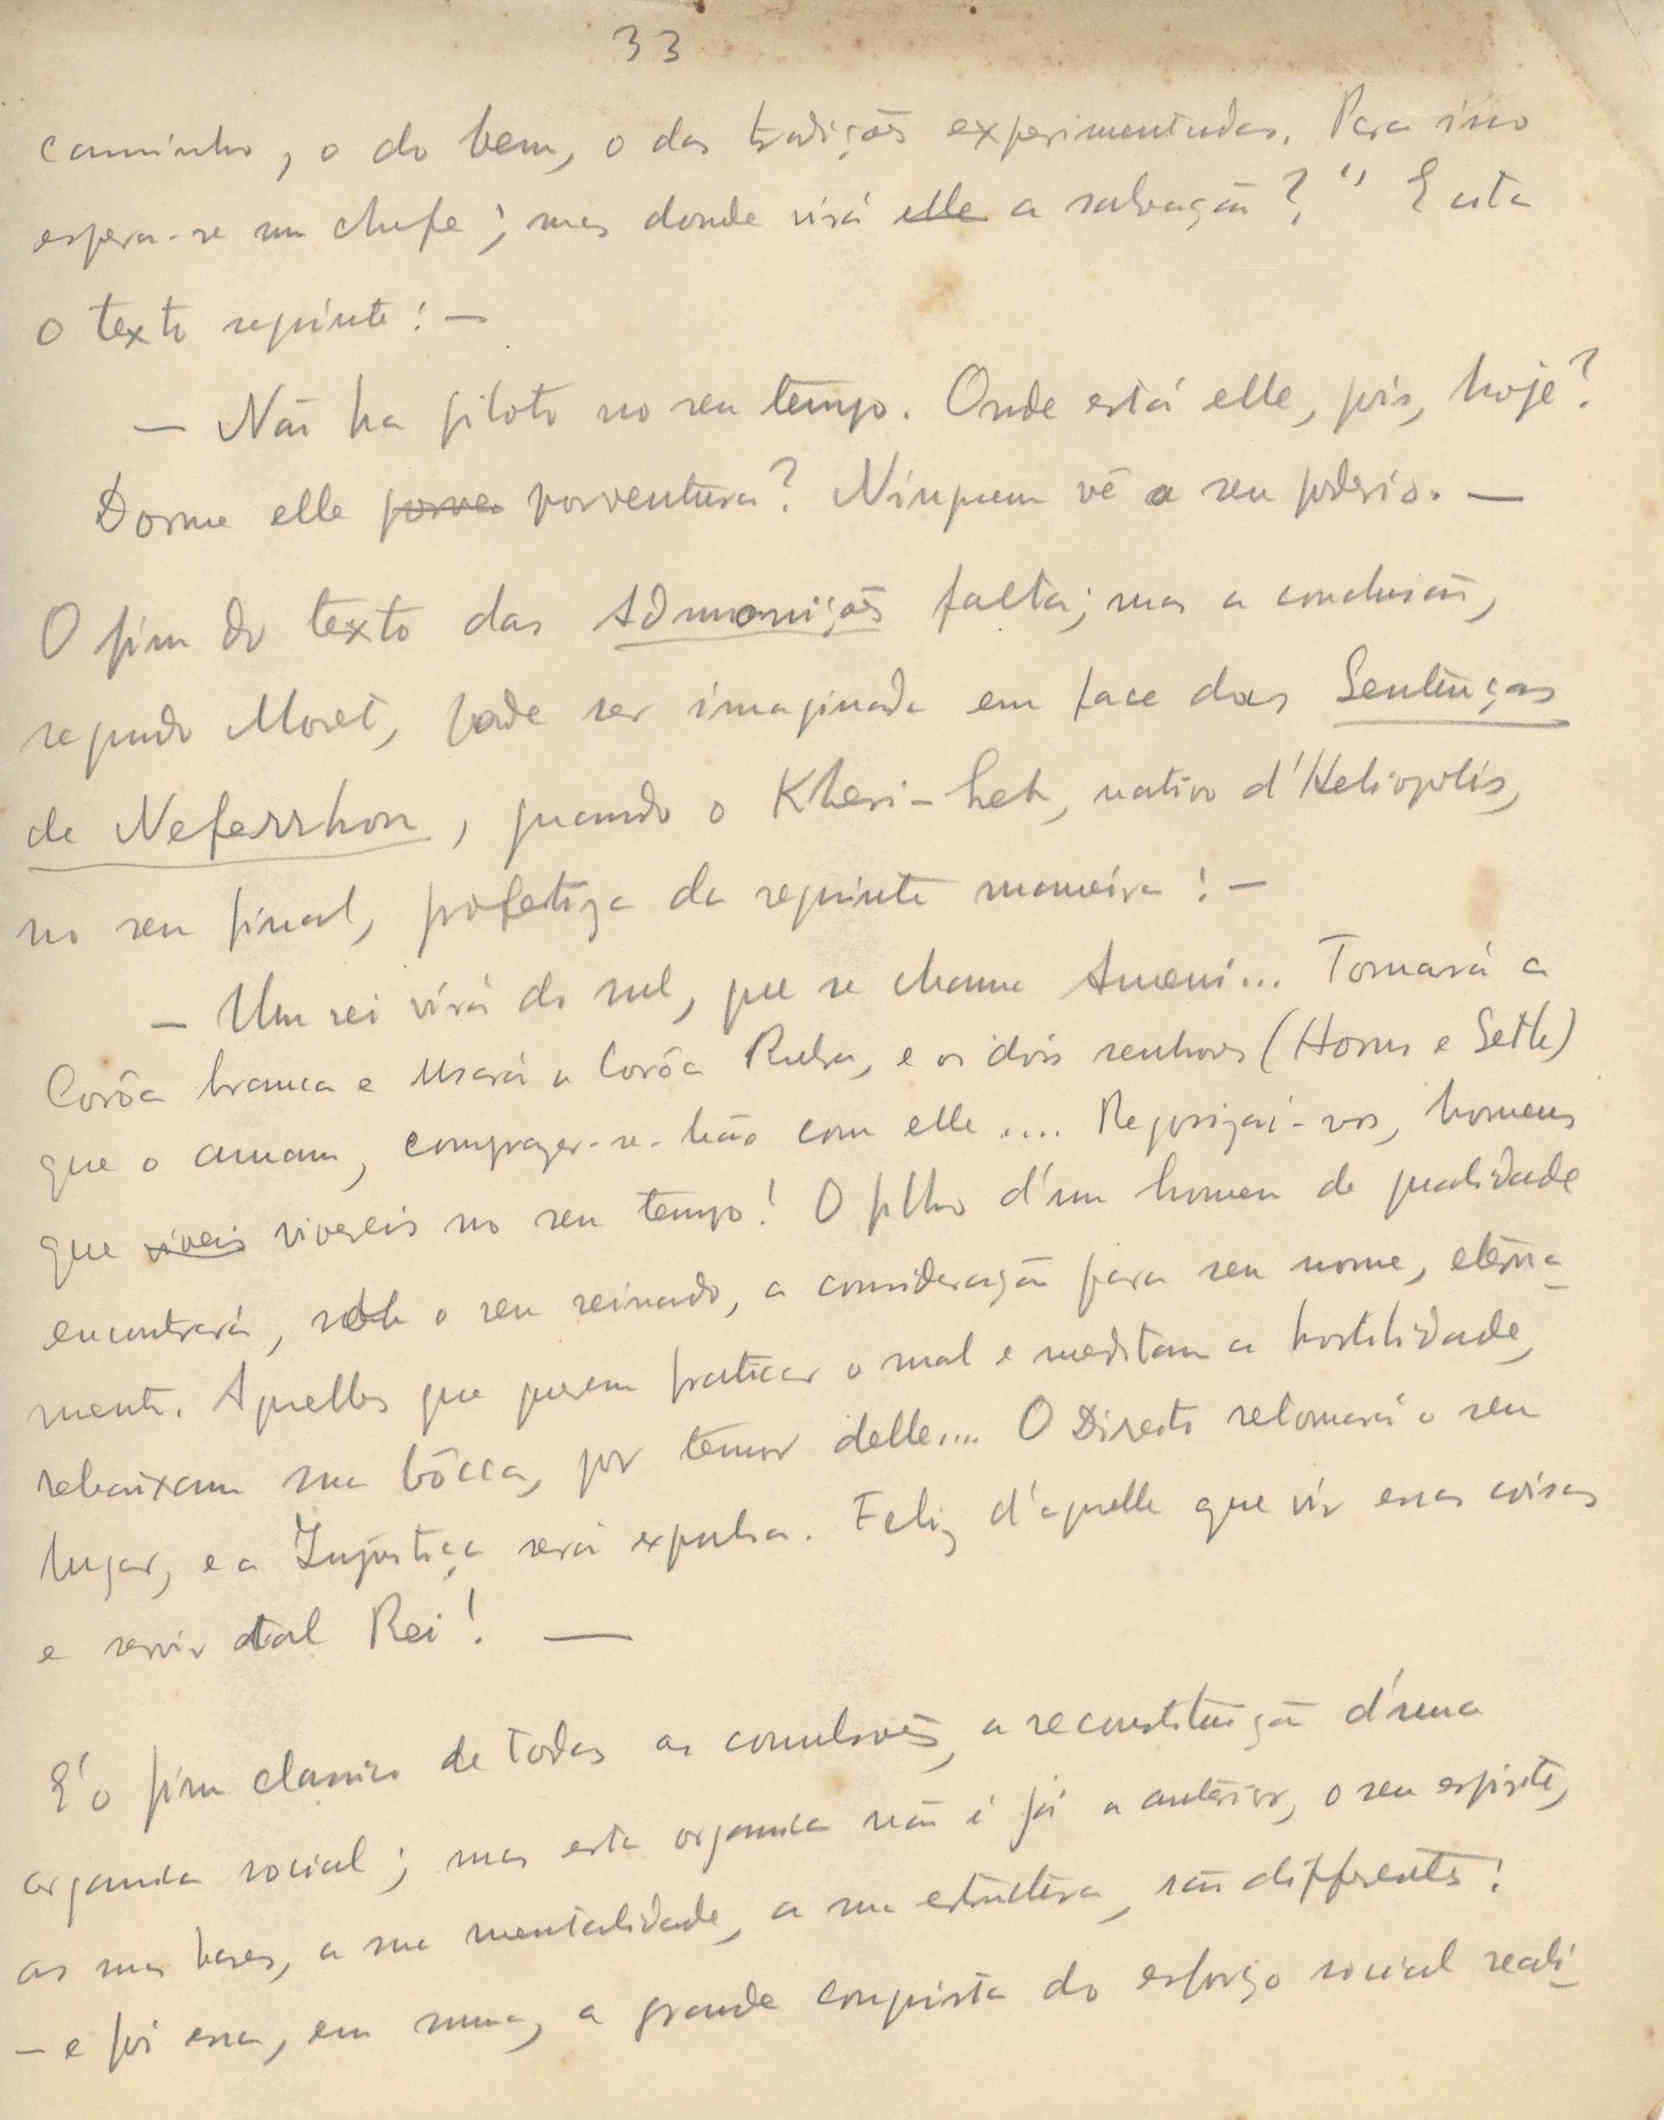 33
caminho, o do bem, o das tradições experimentadas. Para isso
espera-se um chefe; mas donde virá elle a salvação?" E esta
o texto seguinte: —
— Não ha piloto no seu tempo. Onde está elle, pois, hoje?
Dorme elle porve porventura? Ninguem vê o seu poderio. —
O fim do texto das Admonições falta; mas a conclusão,
segundo Moret, pode ser imaginada em face das Sentenças
de Neferrhon, quando o Kheri-heh, nativo d'Heliopolis,
no seu final, profetiza da seguinte maneira: —
— Um rei virá do sul, que se chama Ameni... Tomará a
Corôa branca e usará a Corôa Rubra, e os dois senhores (Horus e Seth)
que o amam, comprazer-se-hão com elle .... Regosijai-vos, homens
que viveis vivereis no seu tempo! O filho d'um homem de qualidade
encontrará, sob o seu reinado, a consideração para seu nome, eterna-
mente. Aquelles que querem praticar o mal e meditam a hostilidade,
rebaixam sua bôcca, por temor delle.... O Direito retomará o seu
lugar, e a Injustiça será expulsa. Feliz d'aquelle que vir essas coisas
e servir tal Rei! —
E' o fim classico de todas as convulsões, a reconstituição d'uma
organica social; mas esta organica não é já a anterior, o seu espirito,
as suas bases, a sua mentalidade, a sua estructura, são differentes:
— e foi essa, em suma, a grande conquista do esforço social reali-